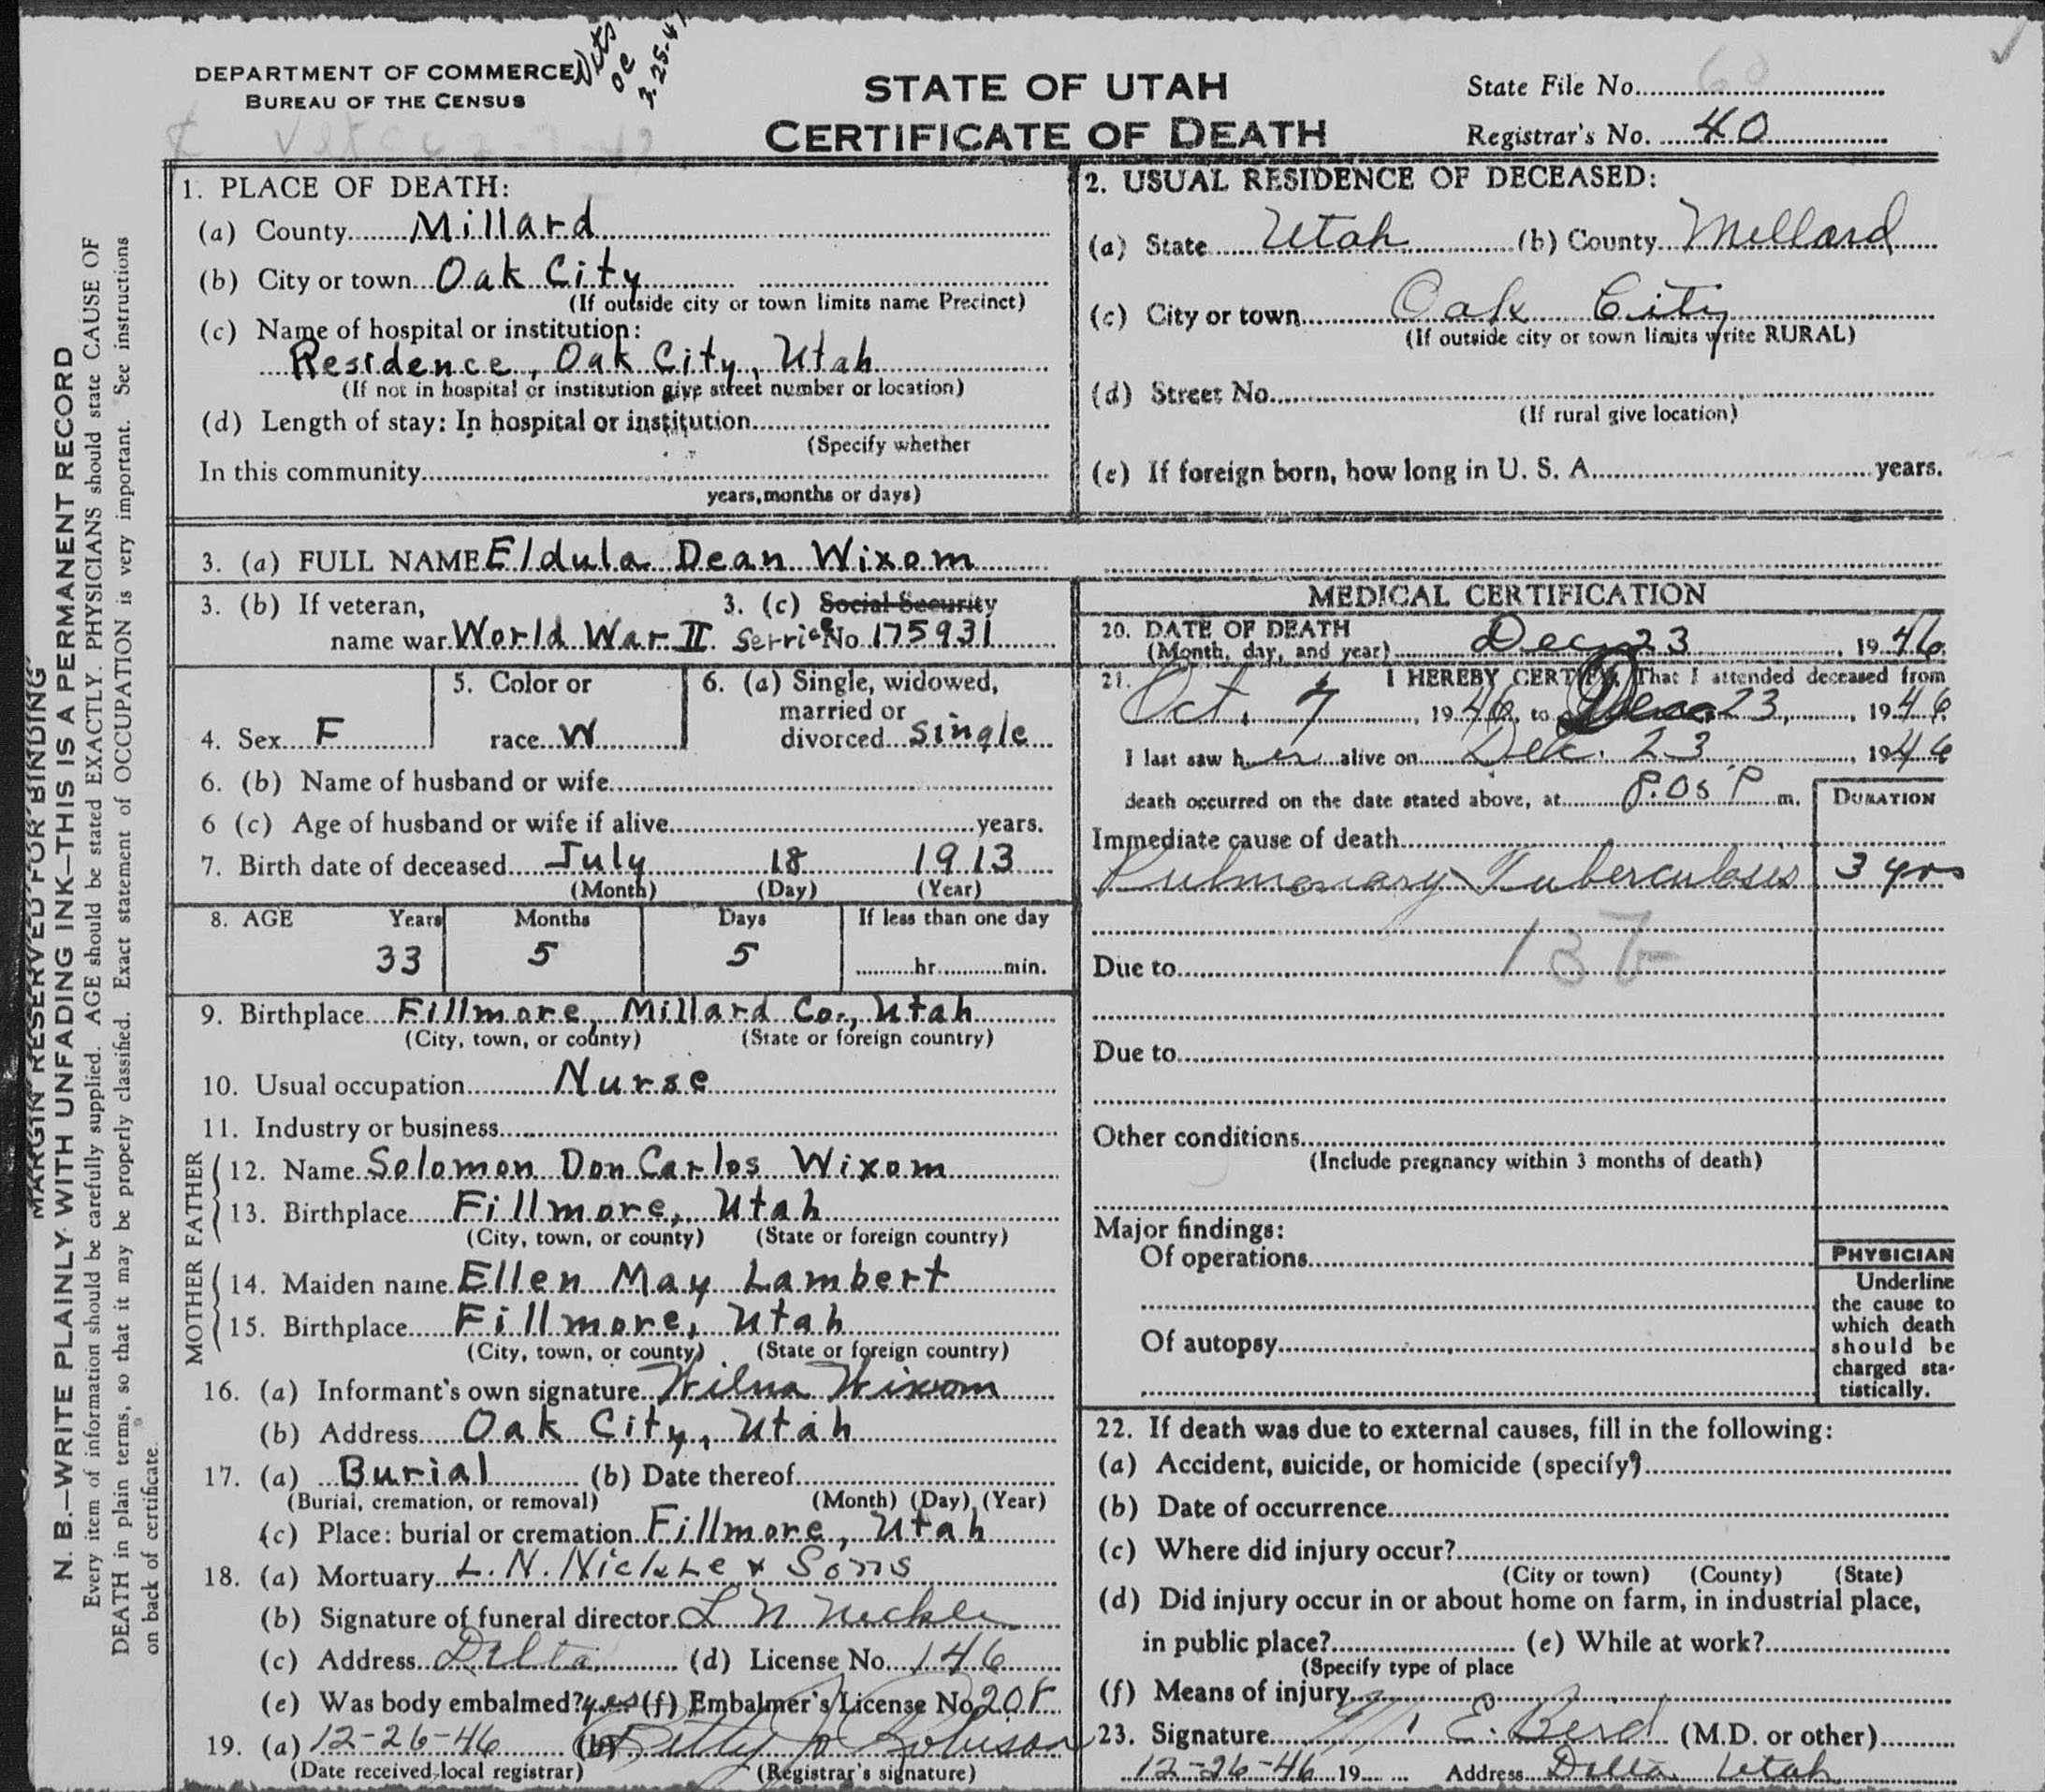 DEPARTMENT OF COMMERCE
BUREAU OF THE CENSUS
3-25-47
STATE OF UTAH
CERTIFICATE OF DEATH
State File No. 60
Registrar's No. 40
MARGIN RESERVED FOR BINDING
N. B.—WRITE PLAINLY WITH UNFADING INK—THIS IS A PERMANENT RECORD
Every item of information should be carefully supplied. AGE should be stated EXACTLY. PHYSICIANS should state CAUSE OF
DEATH in plain terms, so that it may be properly classified. Exact statement of OCCUPATION is very important. See instructions
on back of certificate.
1. PLACE OF DEATH:
(a) County Millard
(b) City or town Oak City
(If outside city or town limits name Precinct)
(c) Name of hospital or institution:
Residence, Oak City, Utah
(If not in hospital or institution give street number or location)
(d) Length of stay: In hospital or institution
(Specify whether
In this community
years, months or days)
2. USUAL RESIDENCE OF DECEASED:
(a) State Utah (b) County Millard
(c) City or town Oak City
(If outside city or town limits write RURAL)
(d) Street No.
(If rural give location)
(e) If foreign born, how long in U. S. A. years.
3. (a) FULL NAME Eldula Dean Wixom
3. (b) If veteran, 3. (c) Social Security
name war World War II Service No. 175931
4. Sex F
5. Color or
race W
6. (a) Single, widowed,
married or
divorced single
6. (b) Name of husband or wife
6 (c) Age of husband or wife if alive years.
7. Birth date of deceased July 18 1913
(Month) (Day) (Year)
8. AGE Years Months Days If less than one day
33 5 5 hr. min.
9. Birthplace Fillmore, Millard Co., Utah
(City, town, or county) (State or foreign country)
10. Usual occupation Nurse
11. Industry or business
FATHER
12. Name Solomon Don Carlos Wixom
13. Birthplace Fillmore, Utah
(City, town, or county) (State or foreign country)
MOTHER
14. Maiden name Ellen May Lambert
15. Birthplace Fillmore, Utah
(City, town, or county) (State or foreign country)
16. (a) Informant's own signature Wilna Wixom
(b) Address Oak City, Utah
17. (a) Burial (b) Date thereof
(Burial, cremation, or removal) (Month) (Day) (Year)
(c) Place: burial or cremation Fillmore, Utah
18. (a) Mortuary L. N. Nickle & Sons
(b) Signature of funeral director L N Nickle
(c) Address Delta (d) License No. 146
(e) Was body embalmed? yes (f) Embalmer's License No. 208
19. (a) 12-26-46 (b) Betty Jo Robison
(Date received local registrar) (Registrar's signature)
MEDICAL CERTIFICATION
20. DATE OF DEATH
(Month, day, and year) Dec 23, 1946
21. I HEREBY CERTIFY, That I attended deceased from
Oct. 7, 1946, to Dec. 23, 1946
I last saw her alive on Dec. 23, 1946
death occurred on the date stated above, at 8:05 P m.
DURATION
Immediate cause of death
Pulmonary Tuberculosis 3 yrs
13b
Due to
Due to
Other conditions
(Include pregnancy within 3 months of death)
Major findings:
Of operations
Of autopsy
PHYSICIAN
Underline
the cause to
which death
should be
charged sta-
tistically.
22. If death was due to external causes, fill in the following:
(a) Accident, suicide, or homicide (specify)
(b) Date of occurrence
(c) Where did injury occur?
(City or town) (County) (State)
(d) Did injury occur in or about home on farm, in industrial place,
in public place? (e) While at work?
(Specify type of place
(f) Means of injury
23. Signature M. E. Bird (M.D. or other)
12-26-46 19 Address Delta Utah